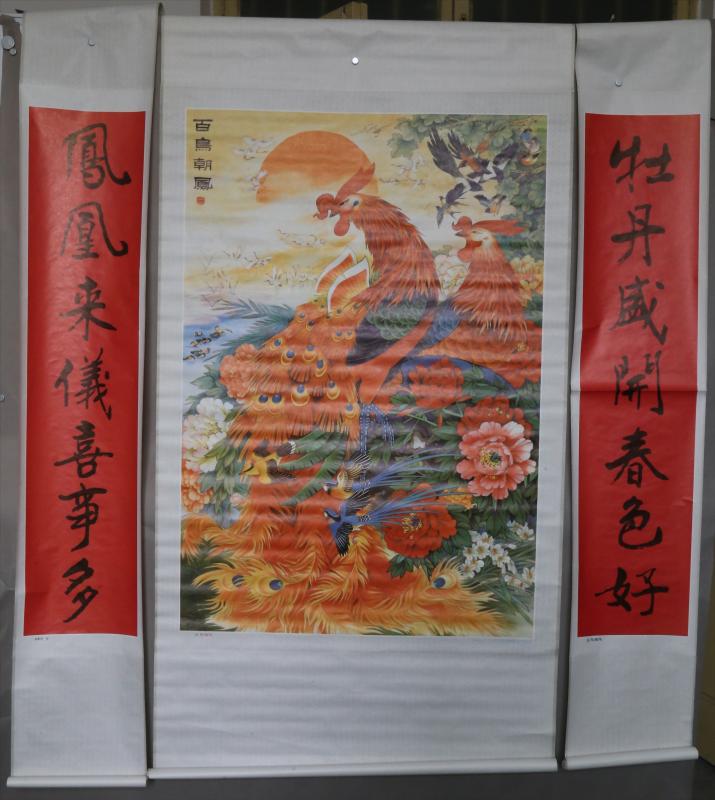 百鳥朝鳳
牡丹盛開春色好
鳳凰来儀喜事多